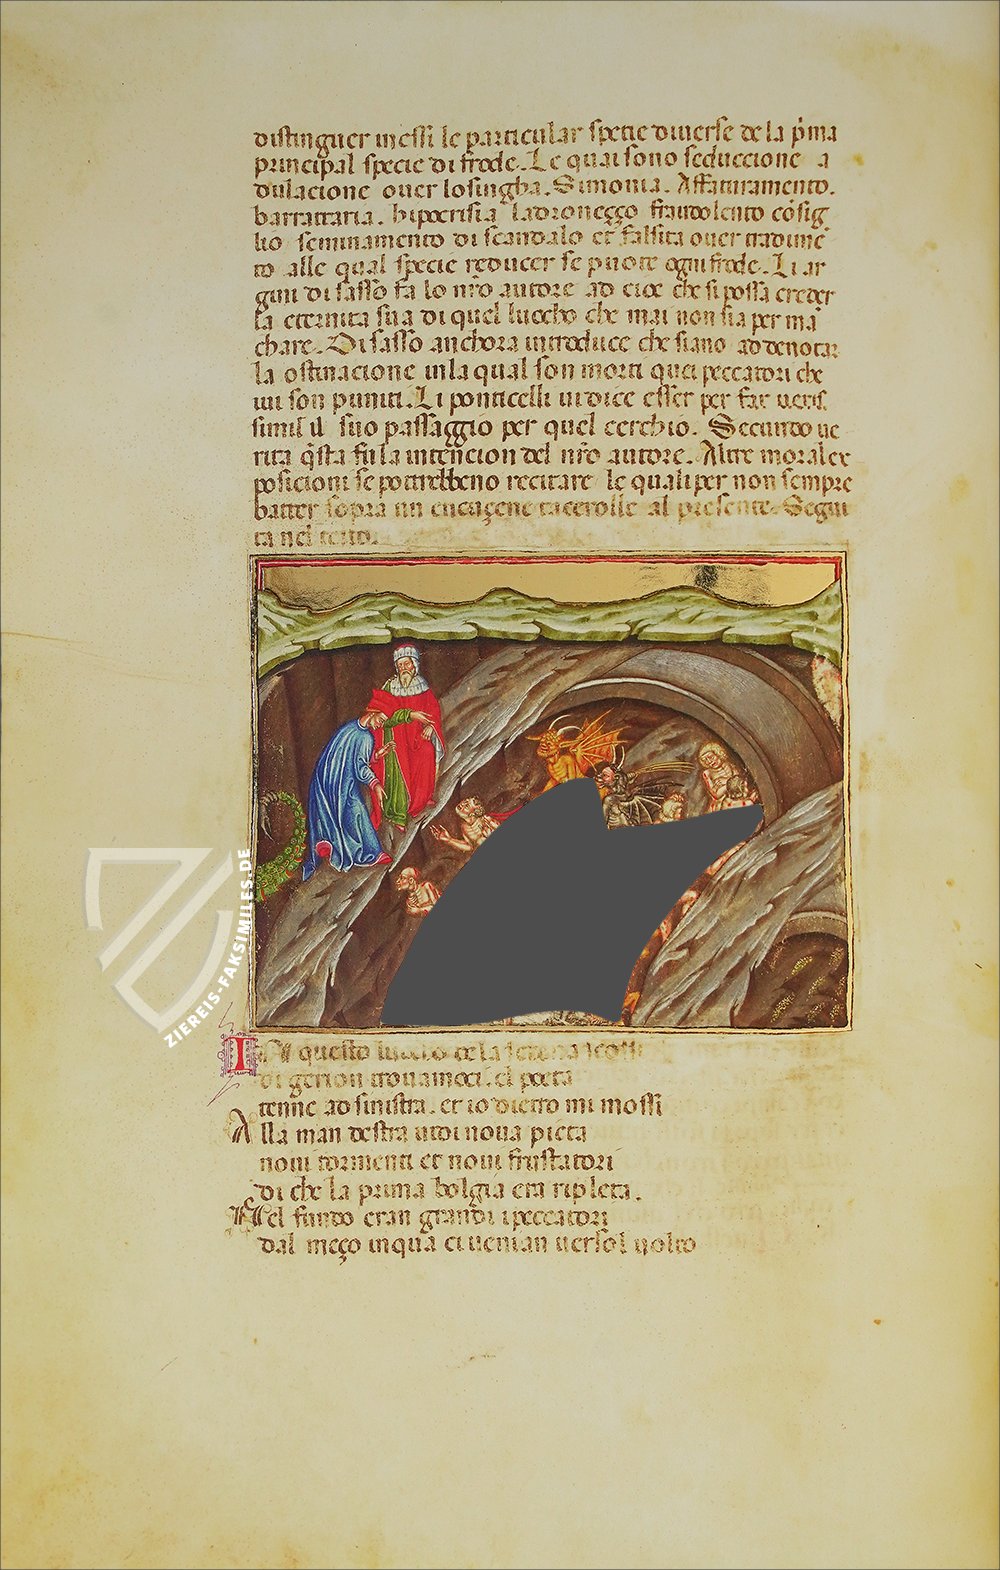 distinguer in essi le particular specie diverse de la pͥma
principal specie di frode. Le quai sono seduccione a
dulacione over losingha. Simonia. Affaturamento.
barrattaria. hipocrisia ladroneçço fraudolento cōsig
lio seminamento di scandalo et falsita over tradimē
to alle qual specie reducer se puote ogni frode. Li ar
gini di sasso fa lo nr̄o autore ad cioe che si possa creder
la eternita sua di quel luocho che mai non sia per mā
chare. Di sasso anchora introduce che siano ad denotar
la ostinacione in la qual son morti quei peccatori che
ivi son puniti. Li ponticelli ivi dice esser per far veris
simil il suo passaggio per quel cerchio. Secundo ve
rita q̄sta fu la intencion del nr̄o autore. Altre moral ex
posicioni se potrebbeno recitare le quali per non sempre
batter sopra un encuçene tacerolle al presente. Segui
ta nel testo.
IN questo luocho de la schena scossi
di gerion trovamoci. el poeta
tenne ad sinistra. et io dietro mi mossi
Alla man destra vidi nova pieta
novi tormenti et novi frustatori
di che la prima bolgia era ripleta.
Nel fundo eran grandi i peccatori
dal meço in qua ci venian verso l volto
ZIEREIS-FAKSIMILES.DE